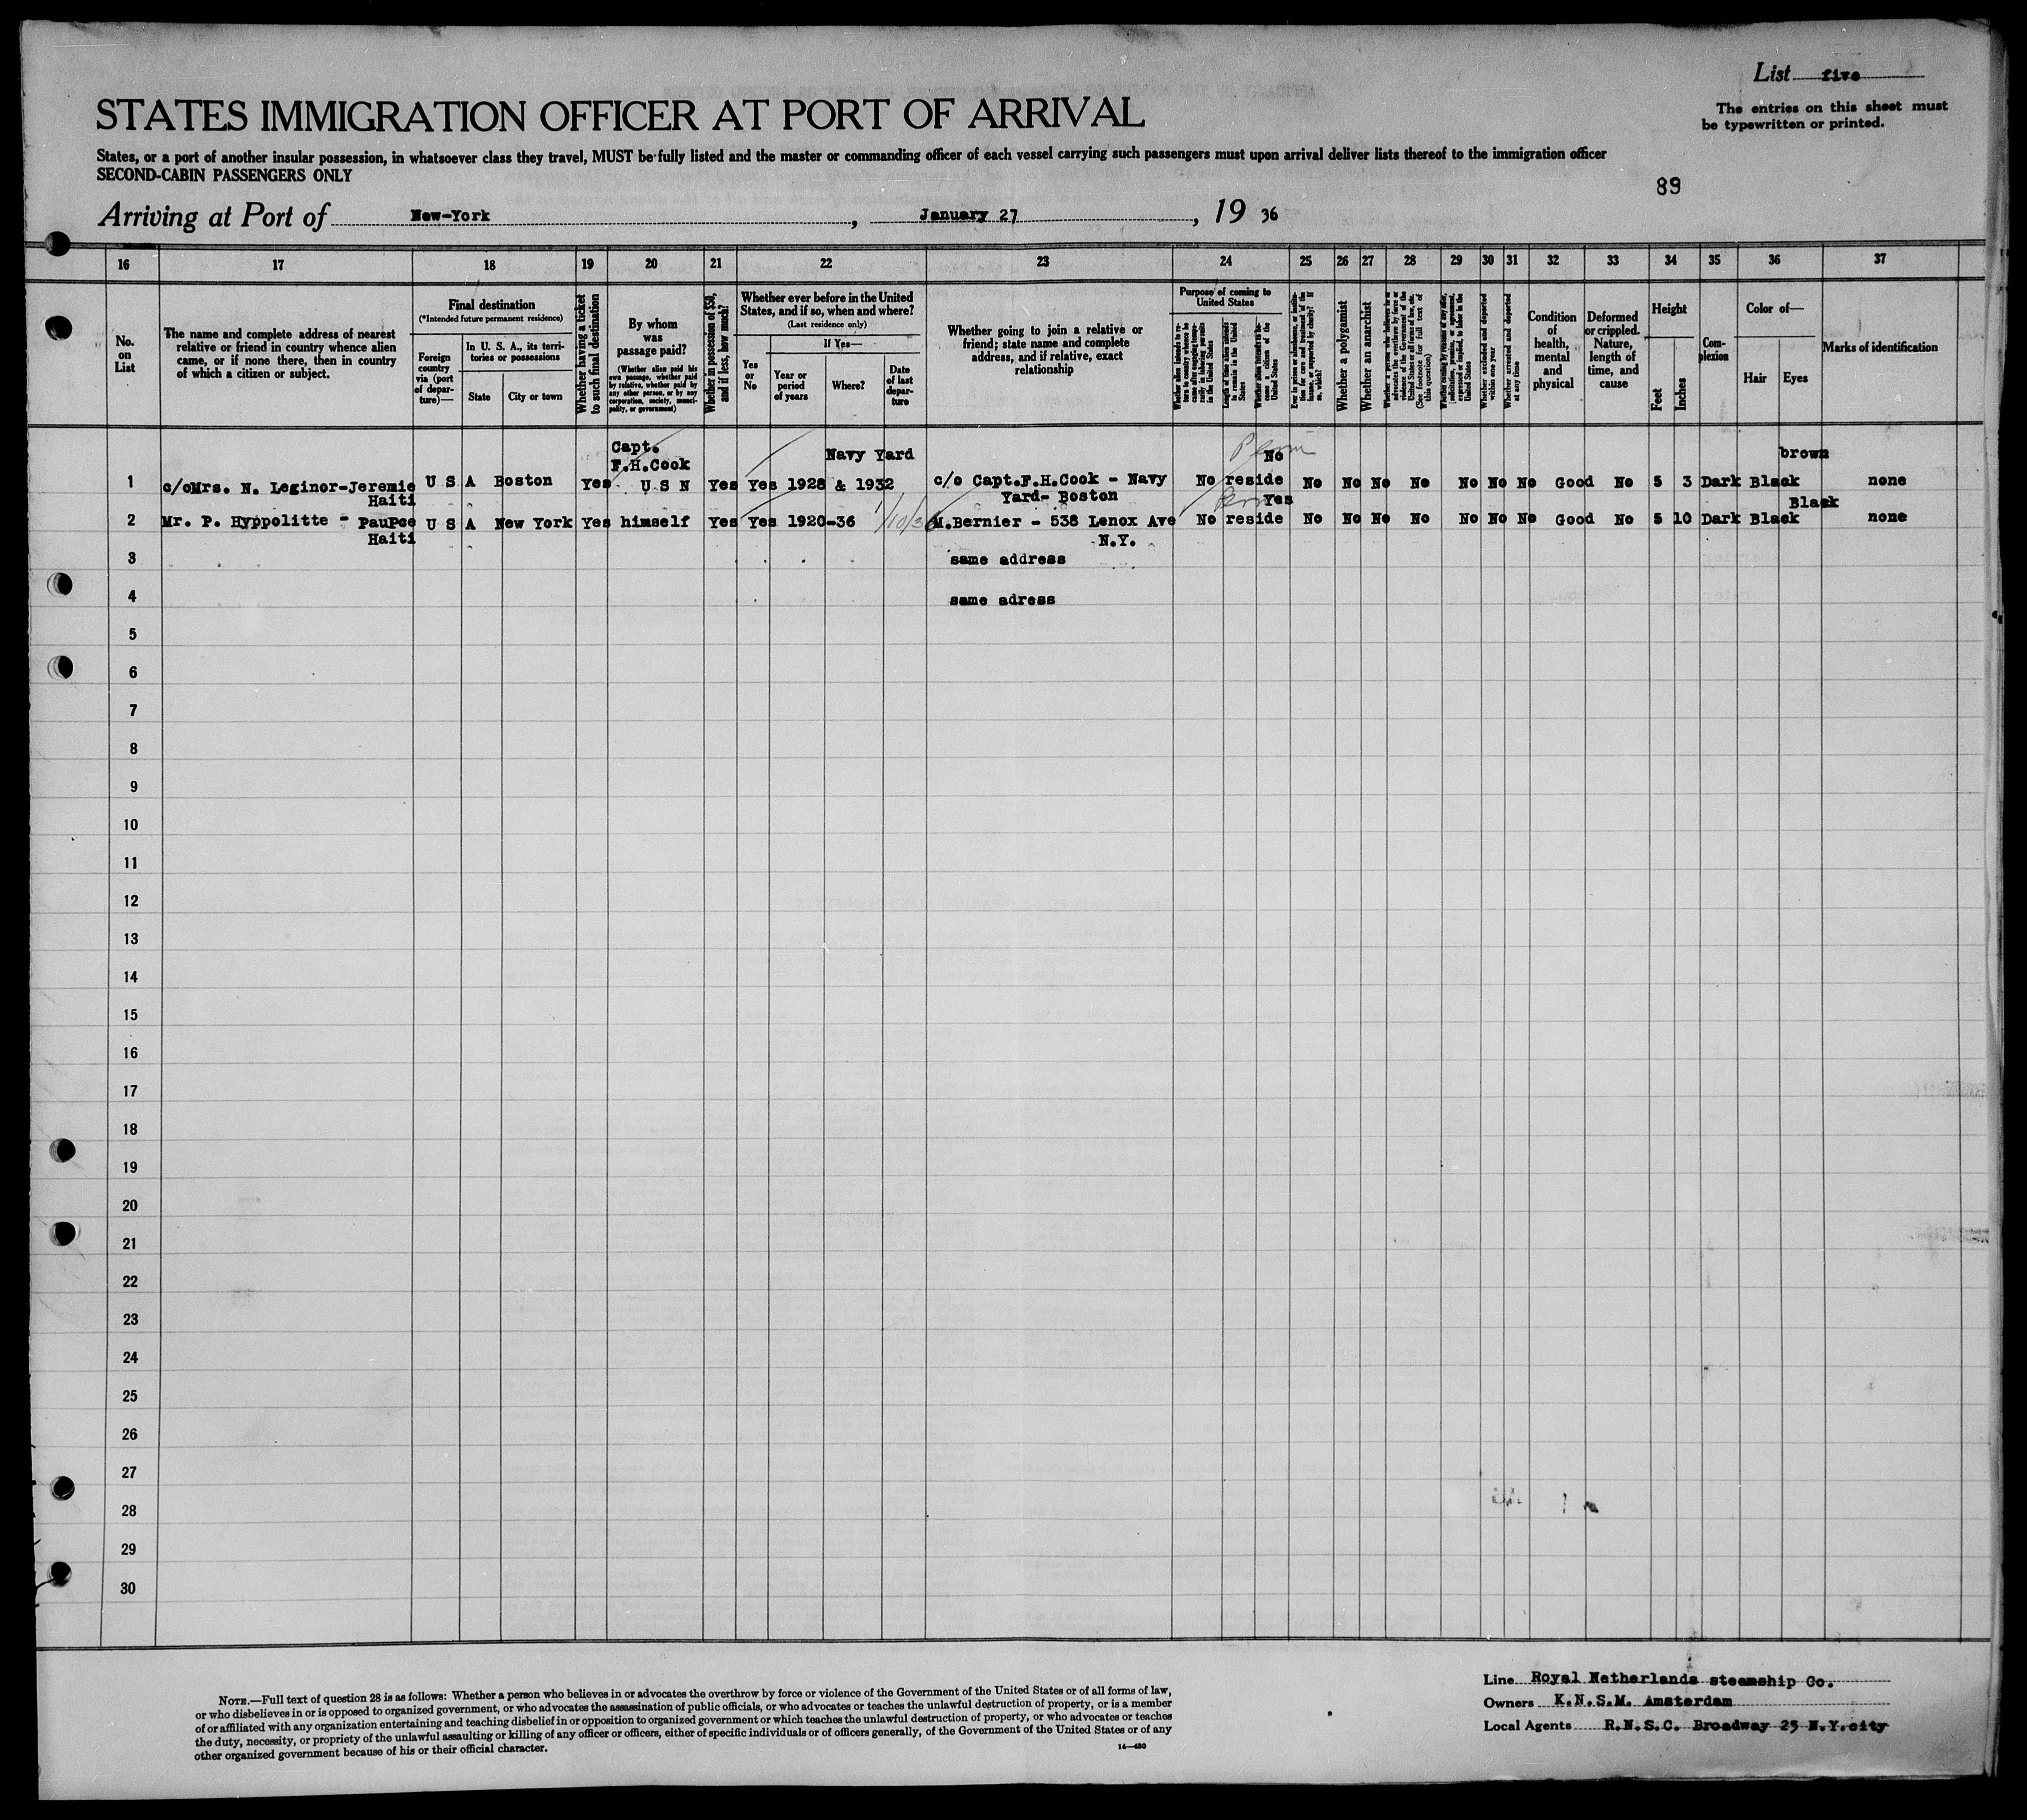 List five
The entries on this sheet must
be typewritten or printed.
STATES IMMIGRATION OFFICER AT PORT OF ARRIVAL
States, or a port of another insular possession, in whatsoever class they travel, MUST be fully listed and the master or commanding officer of each vessel carrying such passengers must upon arrival deliver lists thereof to the immigration officer
SECOND-CABIN PASSENGERS ONLY
89
Arriving at Port of New-York, January 27, 19 36
16 17 18 19 20 21 22 23 24 25 26 27 28 29 30 31 32 33 34 35 36 37
No.
on
List
The name and complete address of nearest
relative or friend in country whence alien
came, or if none there, then in country
of which a citizen or subject.
Final destination
(*Intended future permanent residence)
Foreign
country
via (port
of depar-
ture)—
In U. S. A., its terri-
tories or possessions
State
City or town
Whether having a ticket
to such final destination
By whom
was
passage paid?
(Whether alien paid his
own passage, whether paid
by relative, whether paid by
any other person, or by any
corporation, society, munici-
pality, or government)
Whether in possession of $50,
and if less, how much?
Whether ever before in the United
States, and if so, when and where?
(Last residence only)
Yes
or
No
If Yes—
Year or
period
of years
Where?
Date
of last
depar-
ture
Whether going to join a relative or
friend; state name and complete
address, and if relative, exact
relationship
Purpose of coming to
United States
Whether alien intends to re-
turn to country whence he
came after engaging tempo-
rarily in laboring pursuits
in the United States
Length of time alien intends
to remain in the United
States
Whether alien intends to be-
come a citizen of the
United States
Ever in prison or almshouse, or institu-
tion for care and treatment of the
insane, or supported by charity? If
so, which?
Whether a polygamist
Whether an anarchist
Whether a person who believes in or
advocates the overthrow by force or
violence of the Government of the
United States or all forms of law, etc.
(See footnote for full text of
this question)
Whether coming by reason of any offer,
solicitation, promise, or agreement,
expressed or implied, to labor in the
United States
Whether excluded and deported
within one year
Whether arrested and deported
at any time
Condition
of
health,
mental
and
physical
Deformed
or crippled.
Nature,
length of
time, and
cause
Height
Feet
Inches
Com-
plexion
Color of—
Hair
Eyes
Marks of identification
Capt.
F.H.Cook Navy Yard No brown
1 c/oMrs. N. Leginor-Jeremie U S A Boston Yes U S N Yes Yes 1928 & 1932 c/o Capt.F.H.Cook - Navy No reside No No No No No No No Good No 5 3 Dark Black none
Haiti Yard- Boston Yes Black
2 Mr. P. Hyppolitte - PauPce U S A New York Yes himself Yes Yes 1920-36 1/10/36 M.Bernier - 538 Lenox Ave No reside No No No No No No No Good No 5 10 Dark Black none
Haiti N.Y.
3 same address
4 same adress
5
6
7
8
9
10
11
12
13
14
15
16
17
18
19
20
21
22
23
24
25
26
27
28
29
30
NOTE.—Full text of question 28 is as follows: Whether a person who believes in or advocates the overthrow by force or violence of the Government of the United States or of all forms of law,
or who disbelieves in or is opposed to organized government, or who advocates the assassination of public officials, or who advocates or teaches the unlawful destruction of property, or is a member
of or affiliated with any organization entertaining and teaching disbelief in or opposition to organized government or which teaches the unlawful destruction of property, or who advocates or teaches
the duty, necessity, or propriety of the unlawful assaulting or killing of any officer or officers, either of specific individuals or of officers generally, of the Government of the United States or of any
other organized government because of his or their official character.
14—480
Line Royal Netherlands steamship Co.
Owners K.N.S.M. Amsterdam
Local Agents R.N.S.C. Broadway 25 N.Y.city